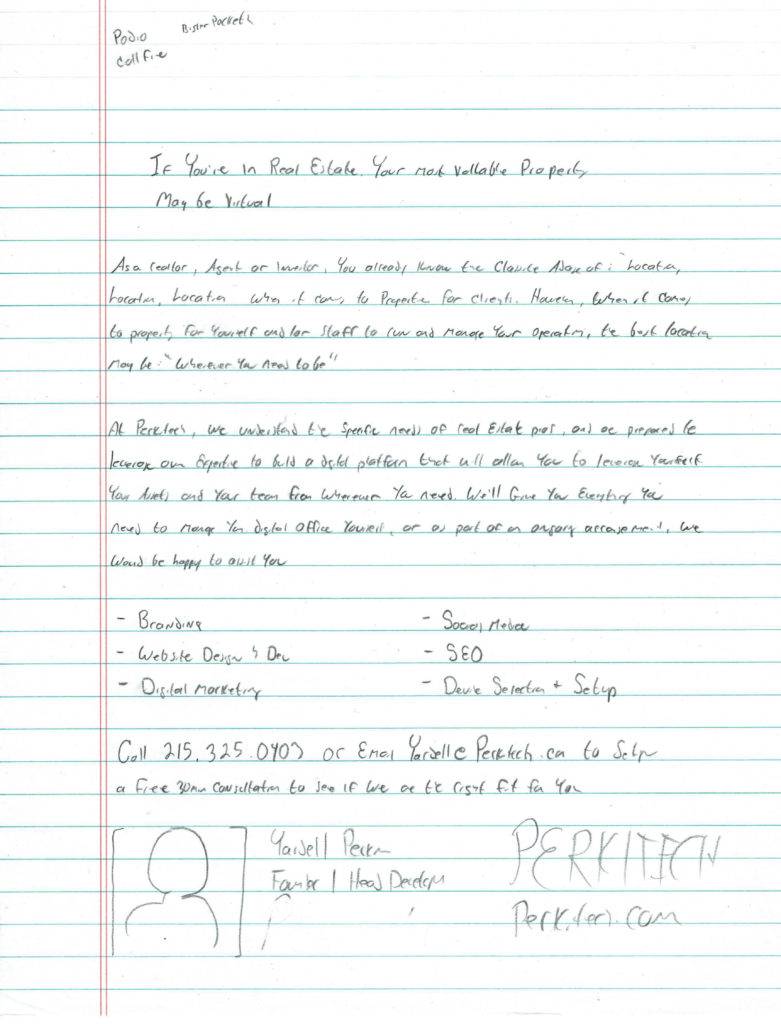 Podio
CallFire
If You're In Real Estate. Your most vallable Property
May be Virtual
As a realtor, Agent or Investor, You already know the Classice Adage of: Location,
Location, Location when it comes to Properties for Clients. However, when it comes
to property for Yourself and/or Staff to run and manage Your operation, the best location
may be: "Wherever You need to be"
At Perkitech, we understand the specific needs of real Estate pros, and are prepared to
leverage our Expertise to build a digital platform that will allow You to leverage Yourself
Your Assets and Your team from wherever You need. We'll Give You Everything You
need to manage Your digital office Yourself, or as part of an ongoing arrangement, we
would be happy to assist You
- Branding - Social Media
- Website Design & Dev - SEO
- Digital Marketing - Device Selection + Setup
Call 215.325. or Email Yardell@Perkitech.com to Setup
a free 30min consultation to see if we are the right fit for You
Yardell Perkin PERKITECH
Founder / Head Developer
Perkitech.com